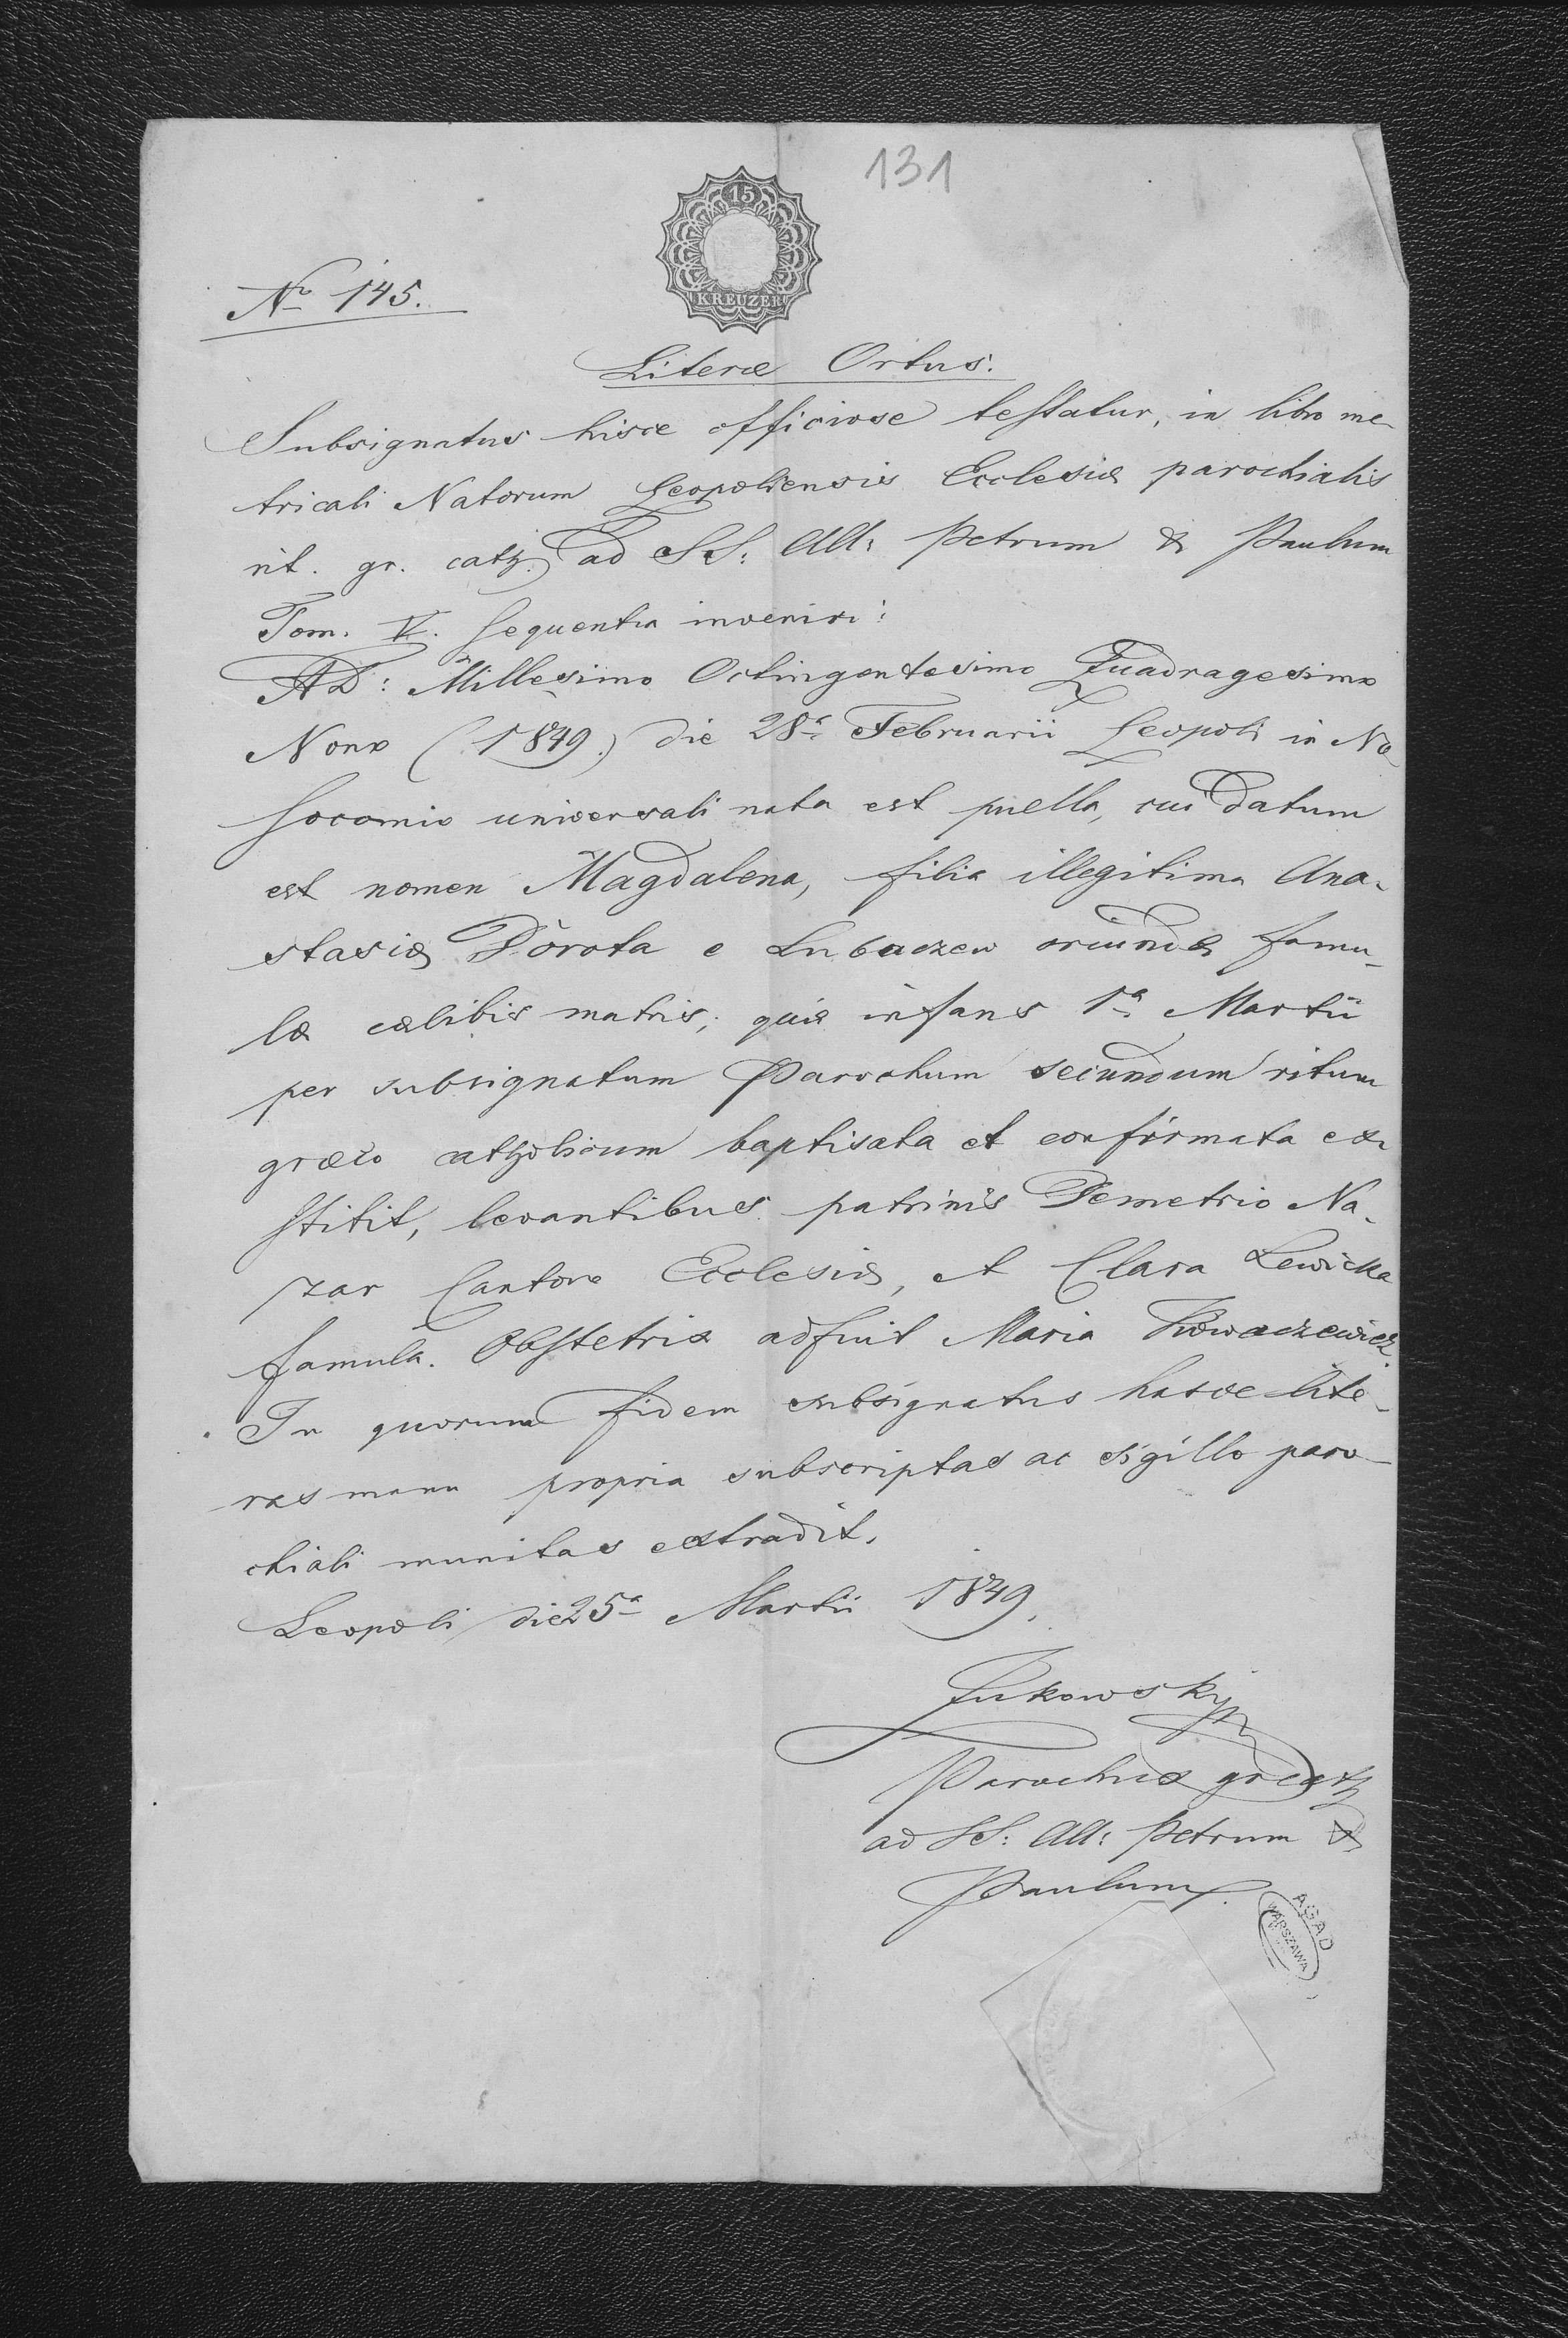 131
15
KREUZER
Nro 145.
Literæ Ortus.
Subsignatus hisce officiose testatur, in libro me-
tricali Natorum Leopoliensis Ecclesiæ parochialis
rit. gr. cath. ad SS: AA: Petrum & Paulum
Tom. V. sequentia inveniri:
AD: Millesimo Octingentesimo Quadragesimo
Nono (1849.) die 28a Februarii Leopoli in No-
socomio universali nata est puella, cui datum
est nomen Magdalena, filia illegitima Ana-
stasiæ Dorota e Lubaczew oriundæ famu-
læ cælibis matris; quæ infans 1a Martii
per subsignatum Parochum secundum ritum
græco catholicum baptisata et confirmata ex-
stitit, levantibus patrinis Demetrio Na-
zar Cantore Ecclesiæ, et Clara Lewicka
famula. Obstetrix adfuit Maria
In quorum fidem subsignatus hasce lite-
ras manu propria subscriptas ac sigillo paro-
chiali munitas extradit.
Leopoli die 25a Martii 1849.
Parochus gr cath
ad SS: AA: Petrum &
Paulum.
AGAD
WARSZAWA